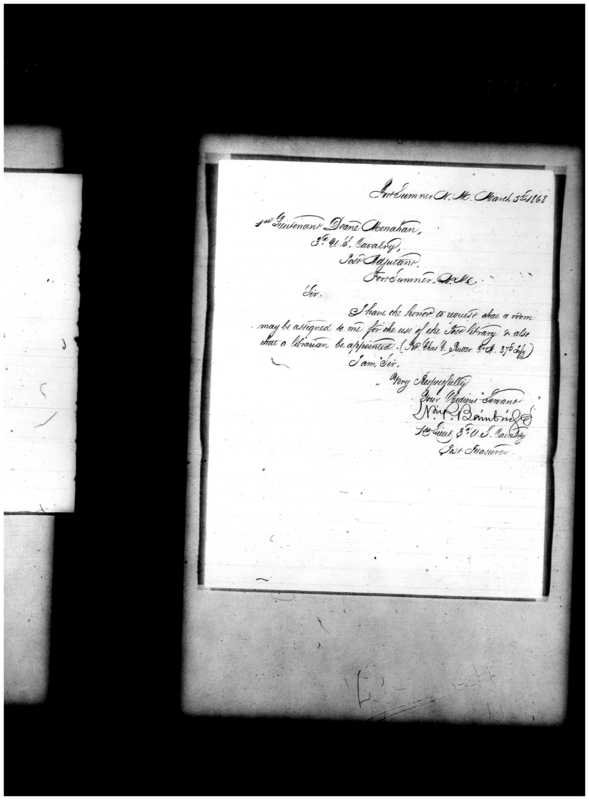 Fort Sumner N. M. March 5th 1868
1st Lieutenant Deane Monahan,
3d U. S. Cavalry,
Post Adjutant.
Fort Sumner. N. M.
Sir.
I have the honor to request that a room
may be assigned to me for the use of the Post library & also
that a librarian be appointed. (Pvt Chas
I am, Sir.
Very Respectfully
Your Obedient Servant
Bainbridge
1st Lieut, 3d U. S. Cavalry
Post Treasurer